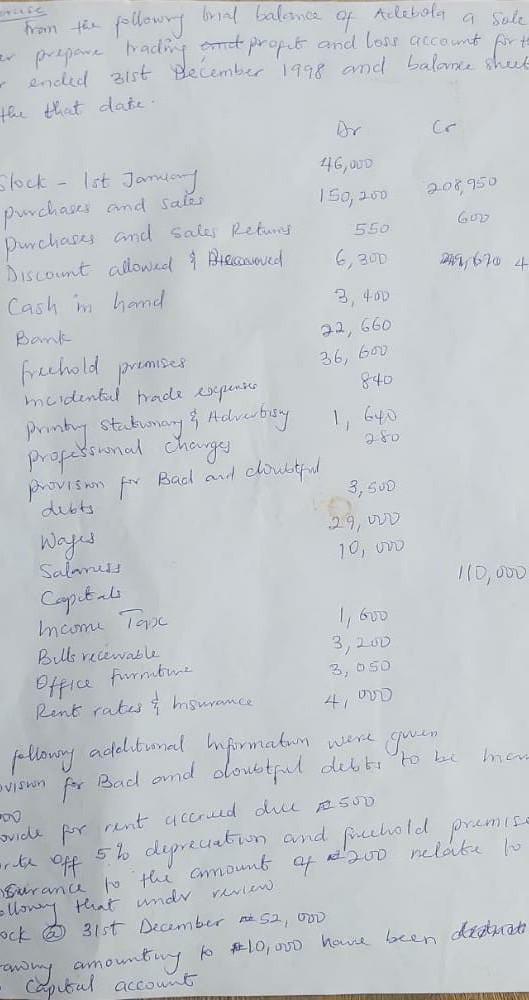 From the following trial balance of Adebola a Sole
er prepare trading profit and loss account for th
r ended 31st December 1998 and balance sheet
the that date.
Dr Cr
Stock - 1st January 46,000
purchases and sales 150,200 208,950
purchases and sales Returns 550 600
Discount allowed & Received 6,300 4
Cash in hand 3,400
Bank 22,660
freehold premises 36,600
incidental trade expenses 840
printing Stationary & Advertising 1,640
professional charges 280
provision for Bad and doubtful
debts 3,500
Wages 29,000
Salaries 10,000
Capitals 110,000
Income Tax 1,600
Bills receivable 3,200
Office furniture 3,050
Rent rates & insurance 4,000
following additional Information were given
ovision for Bad and doubtful debts to be incr
000
ovide for rent accrued due ₦500
rite off 5% depreciation and freehold premise
nsurance to the amount of ₦200 relate to
ollowing that undr review
ock @ 31st December ₦52,000
rawing amounting to ₦10,000 have been
Capital account